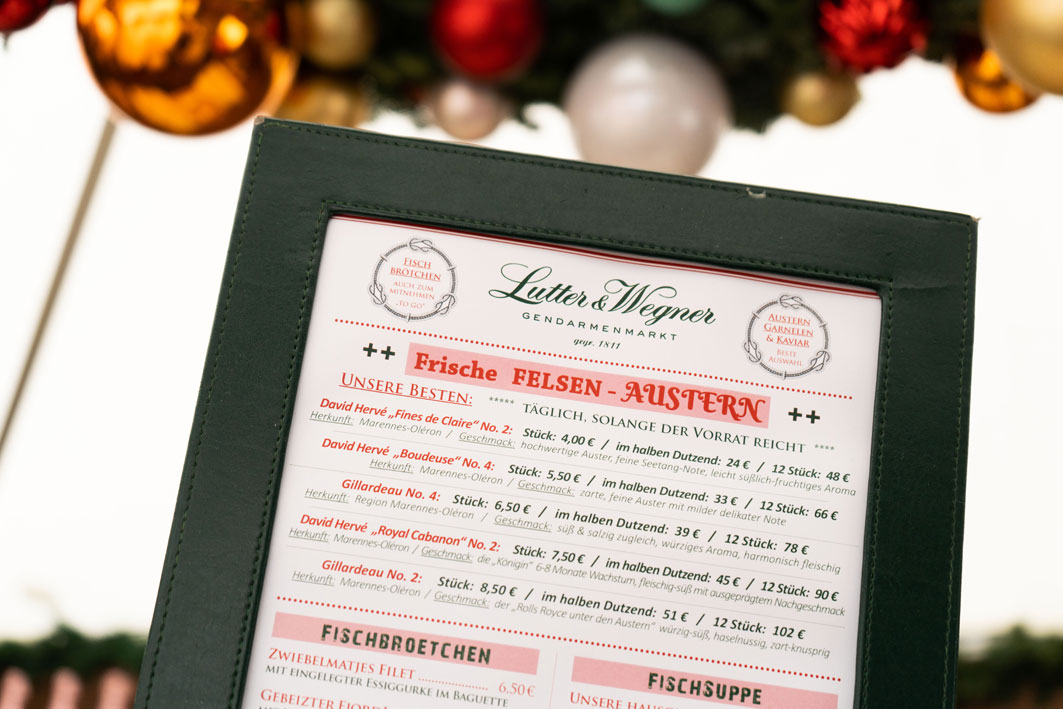 FISCH
BRÖTCHEN
AUCH ZUM
MITNEHMEN
„TO GO"
Lutter & Wegner
GENDARMENMARKT
gegr. 1811
AUSTERN
GARNELEN
& KAVIAR
BESTE
AUSWAHL
++ Frische FELSEN - AUSTERN ++
UNSERE BESTEN: ***** TÄGLICH, SOLANGE DER VORRAT REICHT ****
David Hervé „Fines de Claire" No. 2: Stück: 4,00 € / im halben Dutzend: 24 € / 12 Stück: 48 €
Herkunft: Marennes-Oléron / Geschmack: hochwertige Auster, feine Seetang-Note, leicht süßlich-fruchtiges Aroma
David Hervé „Boudeuse" No. 4: Stück: 5,50 € / im halben Dutzend: 33 € / 12 Stück: 66 €
Herkunft: Marennes-Oléron / Geschmack: zarte, feine Auster mit milder delikater Note
Gillardeau No. 4: Stück: 6,50 € / im halben Dutzend: 39 € / 12 Stück: 78 €
Herkunft: Region Marennes-Oléron / Geschmack: süß & salzig zugleich, würziges Aroma, harmonisch fleischig
David Hervé „Royal Cabanon" No. 2: Stück: 7,50 € / im halben Dutzend: 45 € / 12 Stück: 90 €
Herkunft: Marennes-Oléron / Geschmack: die „Königin" 6-8 Monate Wachstum, fleischig-süß mit ausgeprägtem Nachgeschmack
Gillardeau No. 2: Stück: 8,50 € / im halben Dutzend: 51 € / 12 Stück: 102 €
Herkunft: Marennes-Oléron / Geschmack: der „Rolls Royce unter den Austern" würzig-süß, haselnussig, zart-knusprig
FISCHBROETCHEN
ZWIEBELMATJES FILET ................ 6,50 €
MIT EINGELEGTER ESSIGGURKE IM BAGUETTE
GEBEIZTER
FISCHSUPPE
UNSERE